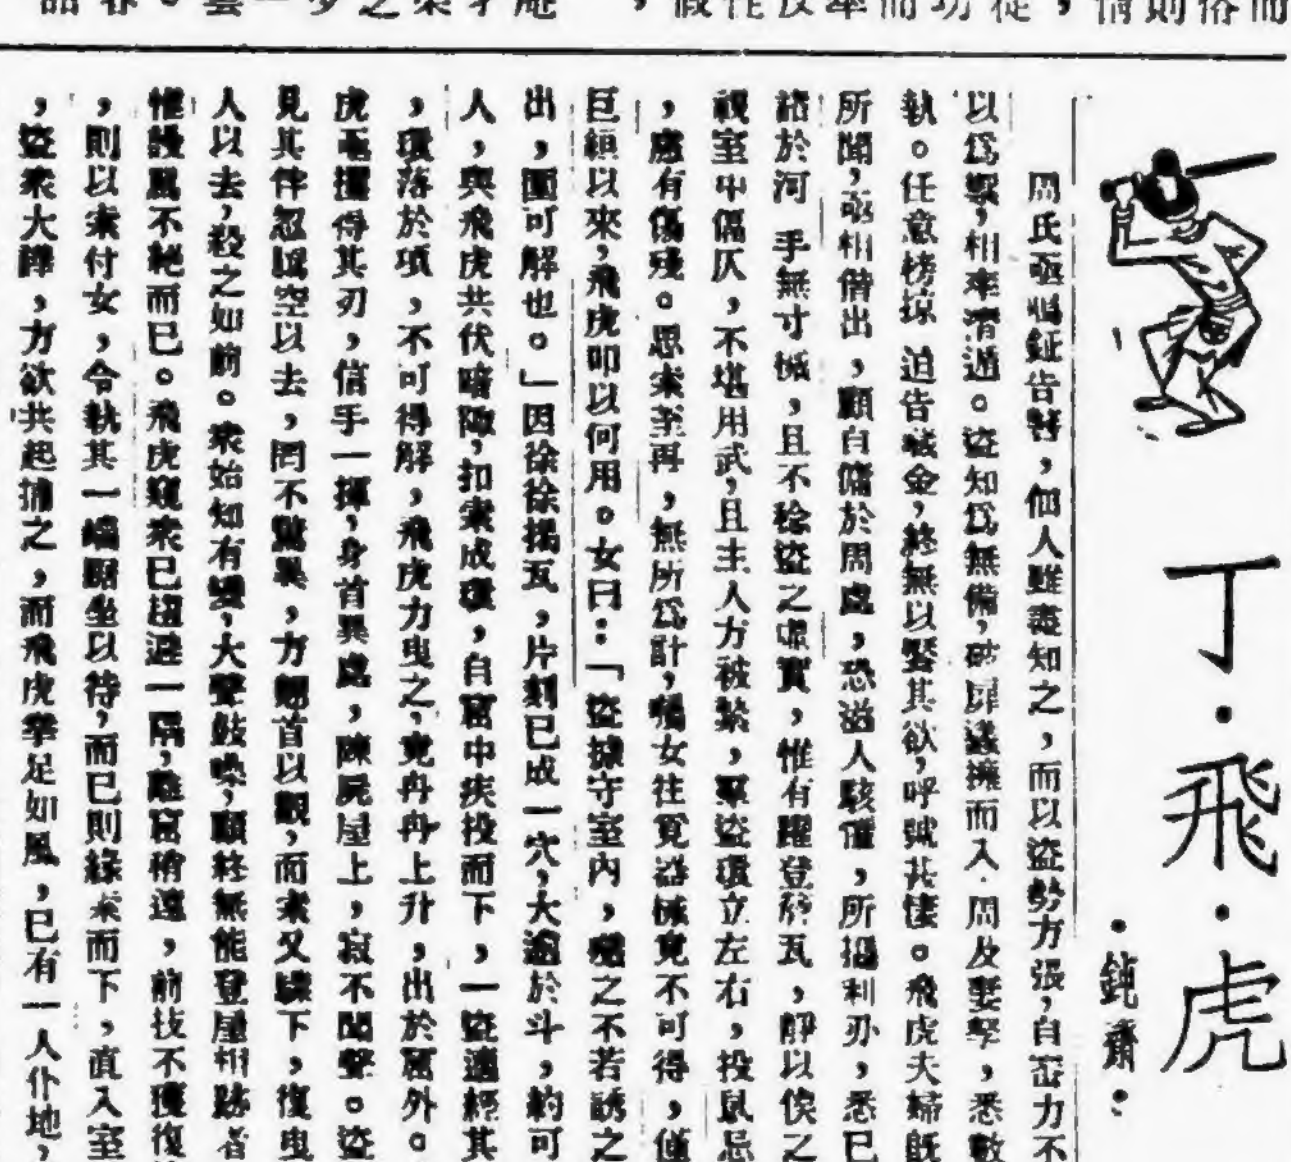 丁・飛・虎
・鈍齋・
周氏亟鳴鉦告警，個人雖盡知之，而以盜勢方張，自審力不
以爲禦，相率潛遁。盜知爲無備，破扉蠭擁而入，周及妻孥，悉數
執。任意榜掠，迫告藏金，終無以饜其欲，呼號甚悽。飛虎夫婦旣
所聞，亟相偕出，顧自傭於周處，恐滋人駭懼，所攜利刃，悉已
諸於河，手無寸械，且不稔盜之虛實，惟有躍登屋瓦，靜以俟之
視室中偪仄，不堪用武，且主人方被縶，羣盜環立左右，投鼠忌
，應有傷殘。思索至再，無所爲計，囑女往覓器械竟不可得，僅
巨絙以來，飛虎叩以何用。女曰：「盜據守室內，攻之不若誘之
出，圍可解也。」因徐徐揭瓦，片刻已成一穴，大逾於斗，約可
人，與飛虎共伏暗陬，扣索成環，自窟中疾投而下，一盜適經其
，環落於項，不可得解，飛虎力曳之，竟冉冉上升，出於窟外。
虎亟攫得其刃，信手一揮，身首異處，陳屍屋上，寂不聞聲。盜
見其伴忽騰空以去，罔不驚異，方翹首以觀，而索又驟下，復曳
人以去，殺之如前。衆始知有變，大聲鼓噪，顧終無能登屋相跡者
惟謾罵不絕而已。飛虎窺衆已趨避一隅，離窟稍遠，前技不獲復
，則以索付女，令執其一端踞坐以待，而已則緣索而下，直入室
，盜衆大譁，方欲共起捕之，而飛虎舉足如風，已有一人仆地，